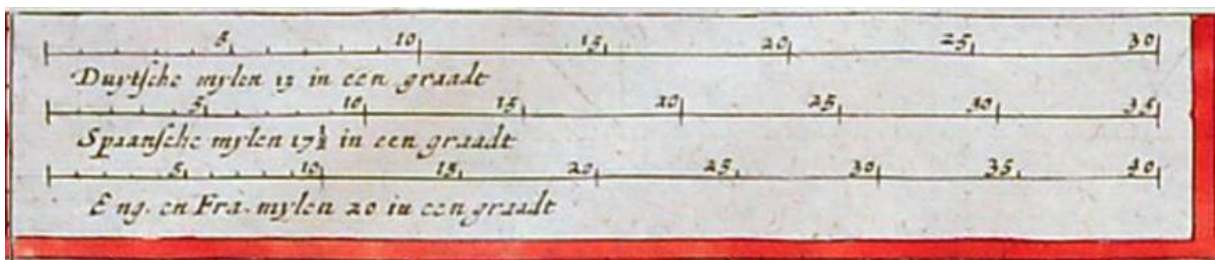 5 10 15 20 25 30
Duytſche mylen 15 in een graadt
5 10 15 20 25 30 35
Spaanſche mylen 17½ in een graadt
5 10 15 20 25 30 35 40
Eng. en Fra. mylen 20 in een graadt